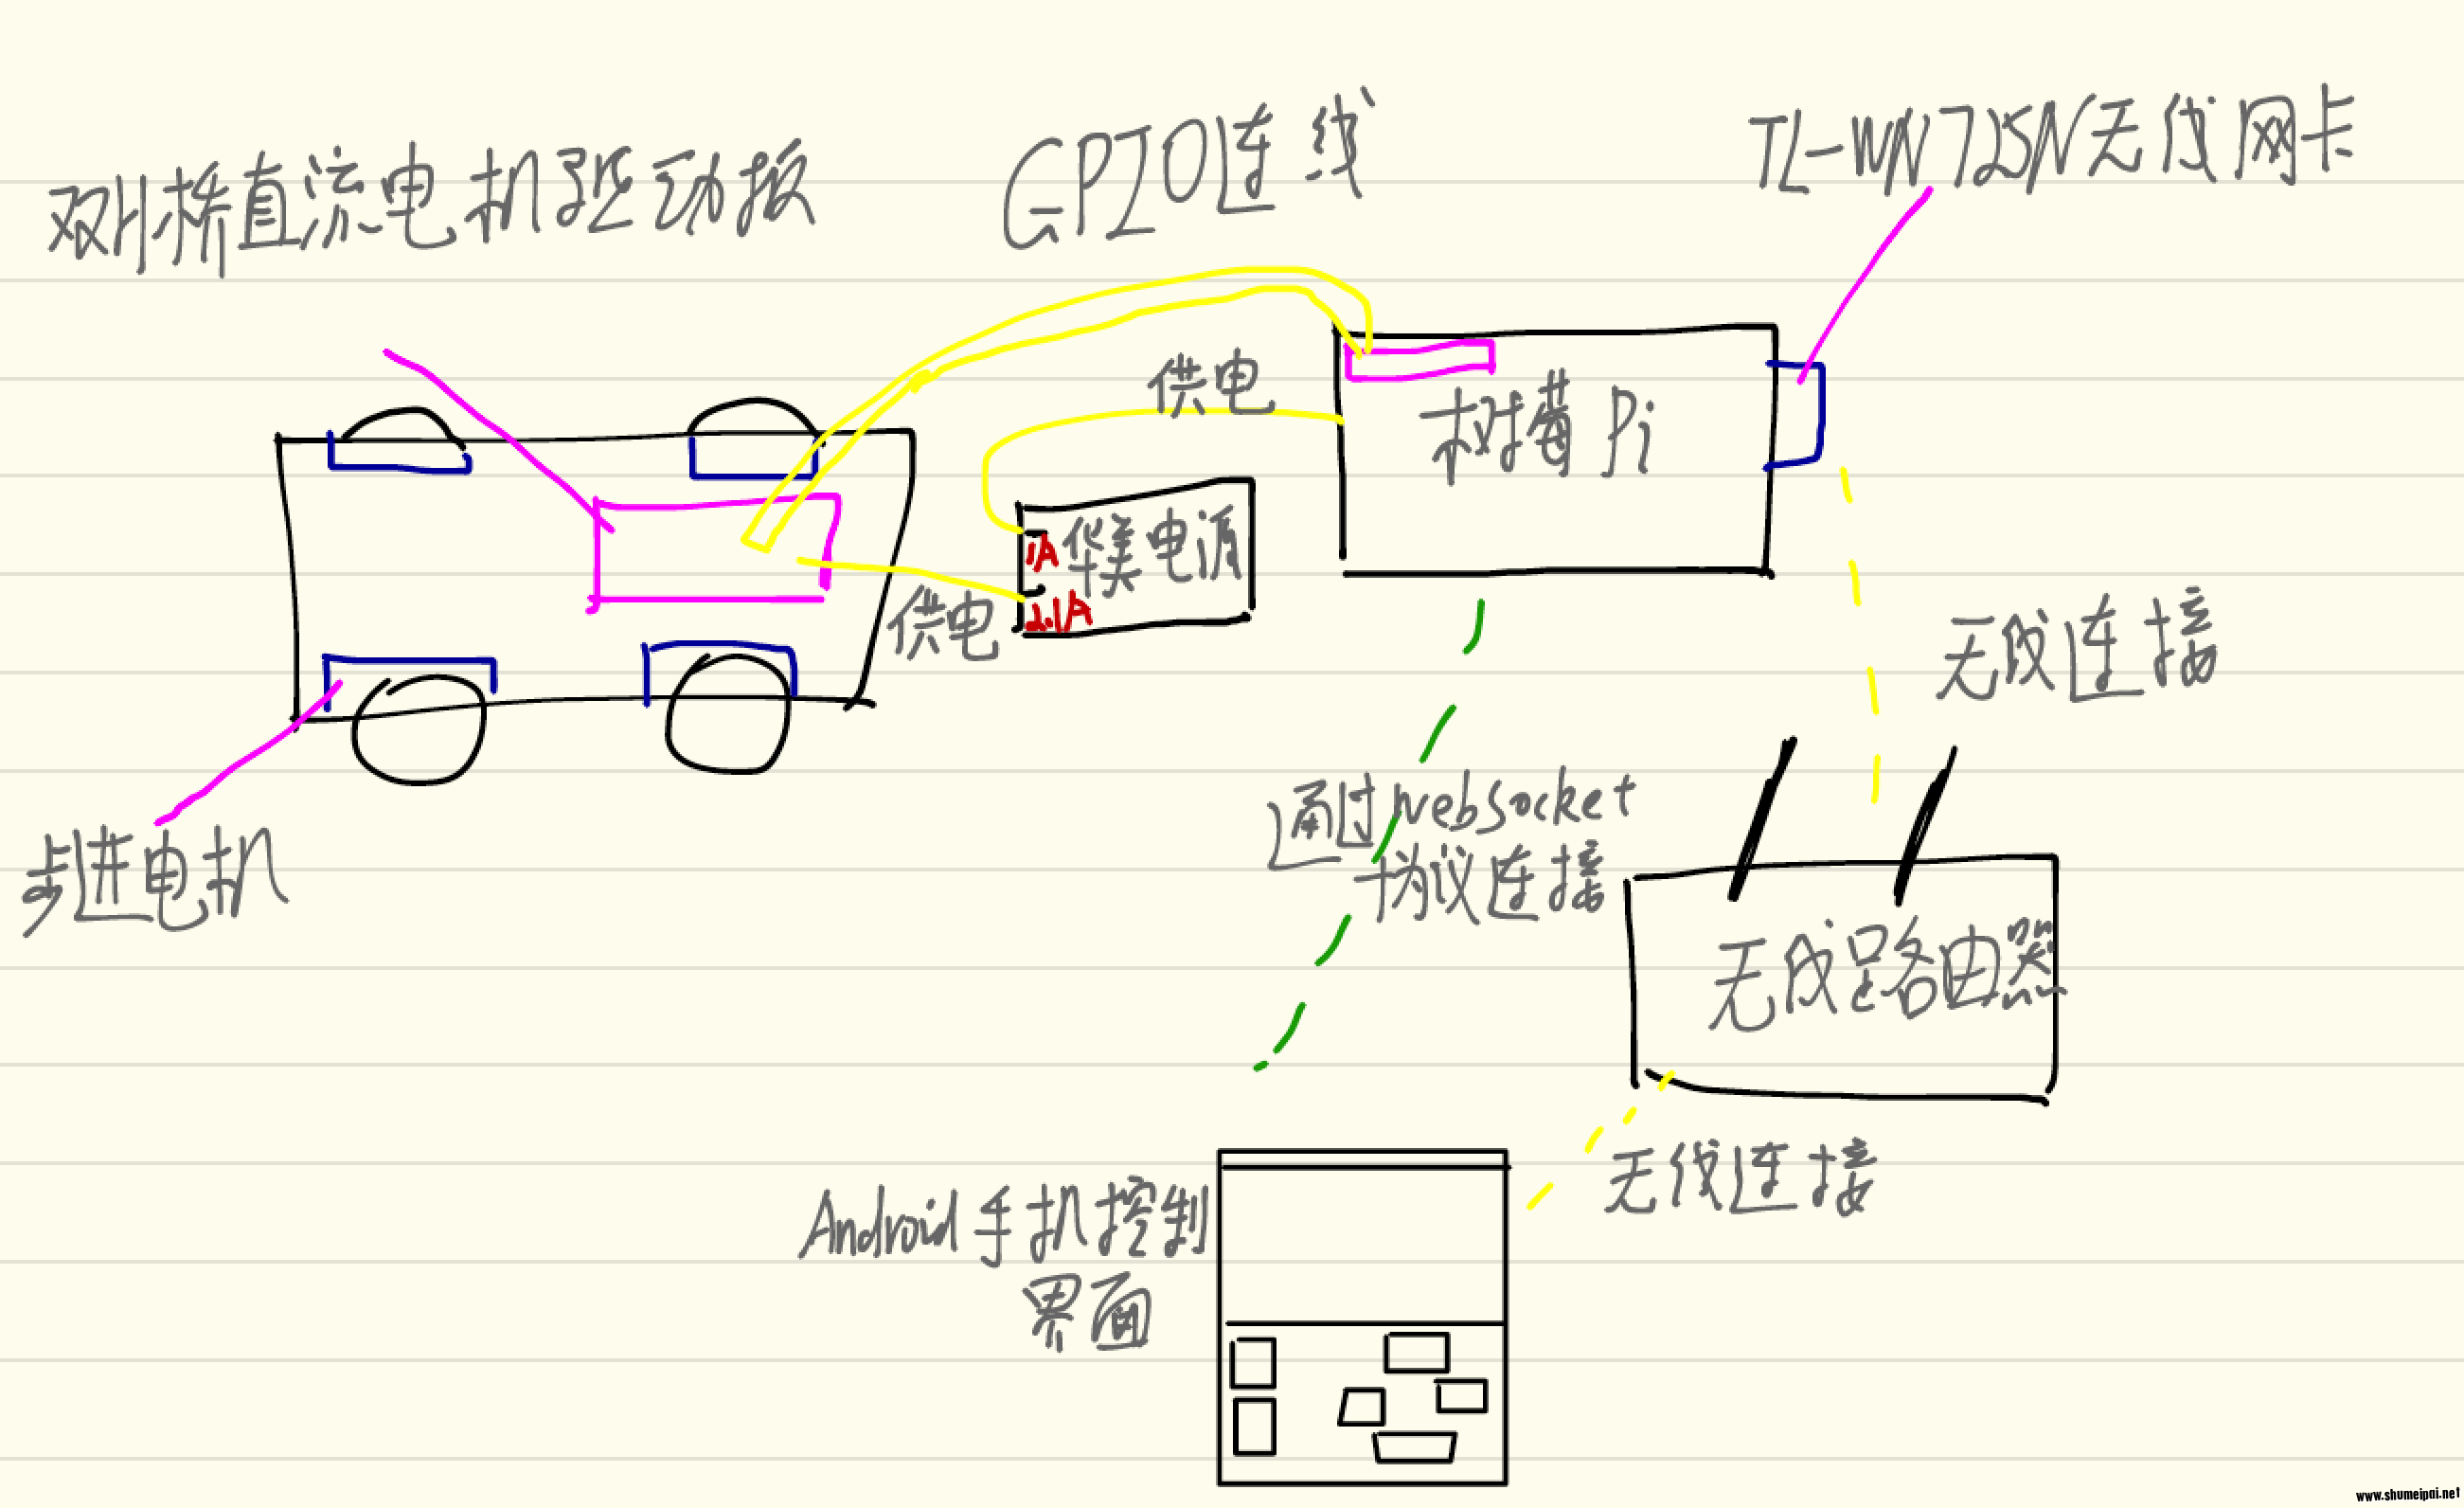 双H桥直流电机驱动板
GPIO连线
TL-WN725N无线网卡
供电
树莓Pi
1A
华美电源
2.1A
供电
无线连接
步进电机
通过websocket
协议连接
无线路由器
无线连接
Android手机控制
界面
www.shumeipai.net